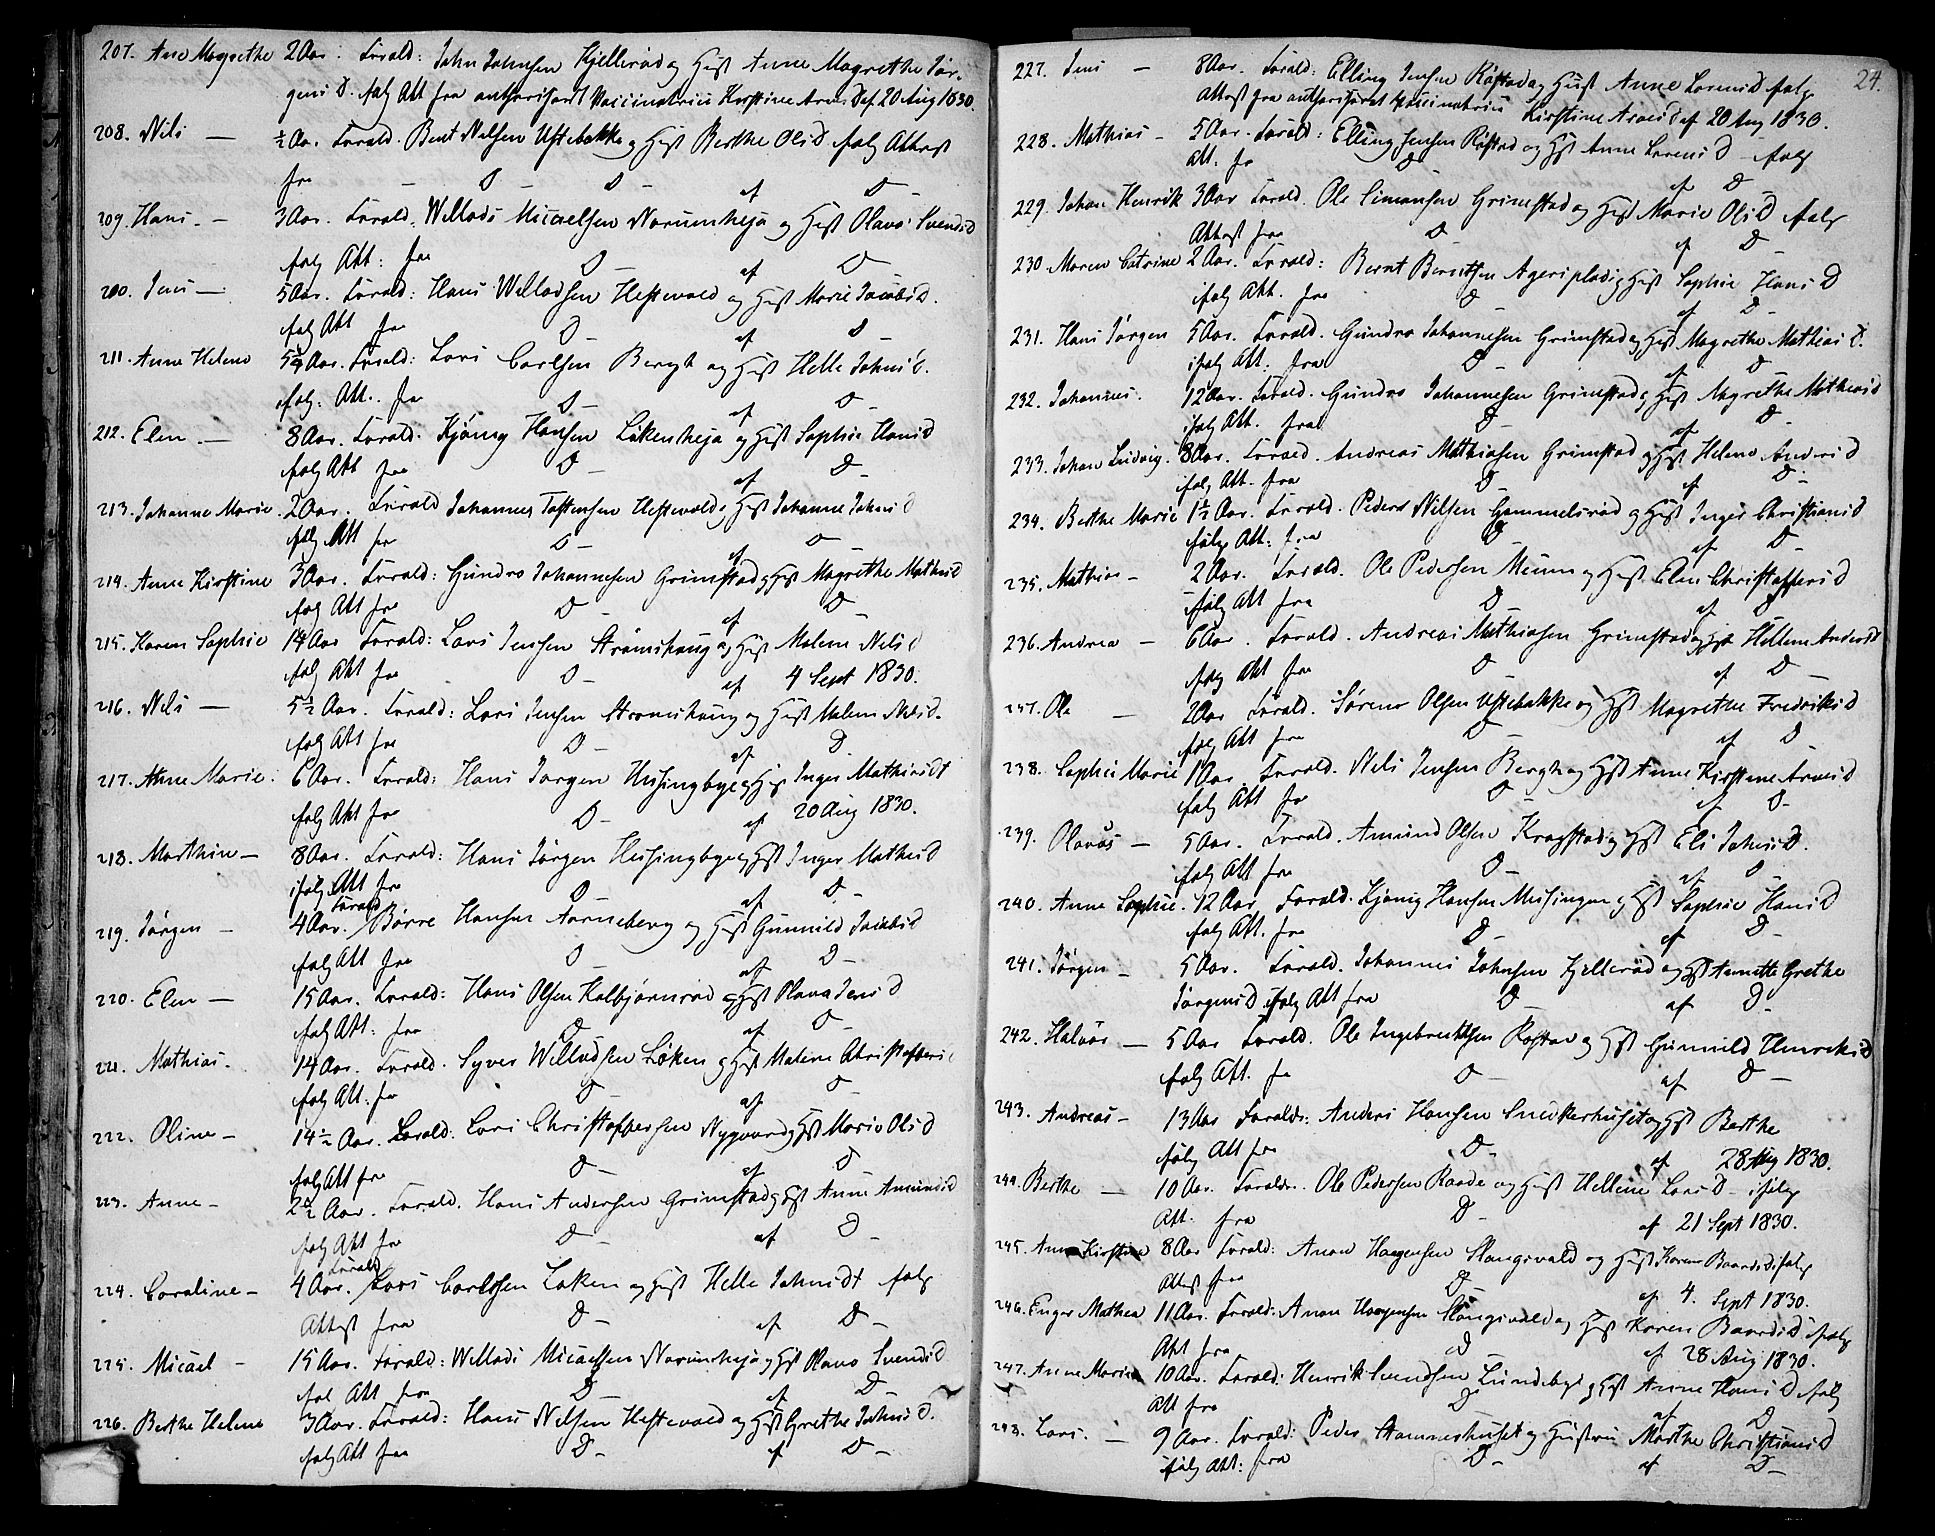 207. Ane Magrethe 2 Aar. Forald: John Johnsen Kjellerød og Hust Anne Magrethe Jør-
gens D. følg Att fra authorisert Vaccinatrice Kirstine Arnes D af 20 Aug 1830.
208. Nils — ½ Aar. Forald. Bent Nilsen Ustebakke og Hust Berthe Ols D følg Attest
fra — D — D — af D —
209. Hans — 3 Aar. Forald. Wellads Micaelsen Norumheja og Hust Olava Svends D
følg Att: fra D af D
200. Jens — 5 Aar. Forald: Hans Welladsen Hestevold og Hust Marie Jacobs D.
følg Att fra D af D
211. Anne Helene 5½ Aar. Forald: Lars Carlsen Bergh og Hust Helle Johns D.
følg. Att. fra D — af D —
212. Elen — 8 Aar. Forald. Kjønig Hansen Løkenheja og Hust Sophie Hans D
følg Att fra D — af D —
213. Johanne Marie 2 Aar. Forald Johannes Tostensen Hestevold og Hust Johanne Johns D
følg Att fra D — af D —
214. Anne Kirstine 3 Aar. Forald: Gundro Johannesen Grimstad og Hust Magrethe Mathis D
følg Att fra D — af D —
215. Karen Sophie 14 Aar Forald: Lars Jensen Strømshaug og Hust Malene Nils D
følg Att fra D — af 4 Sept 1830.
216. Nils — 5½ Aar. Forald: Lars Jensen Strømshaug og Hust Malene Nils D.
følg Att fra D — af D.
217. Anne Marie. 6 Aar. Forald: Hans Jørgen Husingbye og Hust Inger Mathis Dt
følg Att fra D — af 20 Aug 1830.
218. Marthin — 8 Aar. Forald: Hans Jørgen Husingbye og Hst Inger Mathis D
ifølg Att fra D — af D —
219. Jørgen — 4 Aar. Forald Børre Hansen Aarneberg og Hust Gunnild Jacobs D
følg Att fra D af D —
220. Elen — 15 Aar. Forald: Hans Olsen Kalbjørnrød og Hst Olava Jens D
følg Att: fra D af D —
221. Mathias. 14 Aar. Forald. Syver Welladsen Løken og Hst Malene Christoffers D
følg Att. fra D — af D
222. Oline — 14½ Aar. Forald. Lars Christoffersen Nygaard og Hst Marie Ols D
følg Att fra D — af D
223. Anne — 2½ Aar. Forald. Hans Andersen Grimstad og Hst Anne Amunds D
følg Att fra D — af D —
224. Coraline — 4 Aar. Forald Lars Carlsen Løken og Hust Helle Johns Dt følg
Attest fra D — af D —
225. Micael — 15 Aar. Forald: Wellads Micaelsen Norumheja og Hst Olava Svends D
føl Att fra D — af D —
226. Berthe Helene 3 Aar. Forald: Hans Nilsen Hestevold og Hst Grethe Johns D.
følg Att fra D — af D —
24.
227. Jens — 8 Aar. Forald: Elling Jensen Røstad og Hust Anne Lorens D følg
Attest fra authoriseret Vaccinatrice Kirstine Arnes D af 20 Aug 1830.
228. Mathias — 5 Aar. Forald: Elling Jensen Røstad og Hst Anne Lorens D — følg
Att. fra D af D
229. Johan Henrik 3 Aar Forald. Ole Simensen Grimstad og Hust Marie Ols D følg
Attest fra D af D —
230 Maren Catrine 2 Aar. Forald: Bernt Berntsen Ageriplads og Hust Sophie Hans D
ifølg Att. fra D af D —
231. Hans Jørgen 5 Aar. Forald. Gundro Johannesen Grimstad og Hust Magrethe Mathias D.
ifølg Att: fra D — af D
232. Johannes. 12 Aar. Forald. Gundro Johannesen Grimstad og Hust Magrethe Mathias D
ifølg Att. fra D — af D —
233. Johan Ludvig. 8 Aar. Forald. Andreas Mathiasen Grimstad og Hust Helene Anders D
ifølg Att. fra D — af D —
234. Berthe Marie 1½ Aar. Forald. Peder Nilsen Gammelsrød og Hust Inger Christians D
følg Att: fra D af D —
235. Mathias — 2 Aar. Forald. Ole Pedersen Muum og Hust Elen Christoffers D
følg Att fra D af D
236. Andrea — 6 Aar. Forald. Andreas Mathiasen Grimstad og Hst Hellene Anders D
følg Att fra D af D —
237. Ole — 2 Aar Forald. Søren Olsen Ustebakke og Hst Magrethe Fredriks D
følg Att fra D — af D —
238. Sophie Marie 1 Aar Forald. Nils Jensen Bergh og Hst Anne Kirstine Arnes D
følg Att fra D — af D —
239. Olavus — 5 Aar. Forald. Amund Olsen Kragstad og Hst Eli Johns D.
følg Att fra D — af D —
240. Anne Sophie. 12 Aar Forald. Kjønig Hansen Musingen og Hst Sophie Hans D
følg Att. fra D — af D —
241. Jørgen — 5 Aar. Forald. Johannes Johnsen Kjellerød og Hst Annette Grethe
Jørgens D ifølg Att fra D — af D —
242. Halvor — 5 Aar Forald. Ole Ingebretsen Røstad og Hst Gunnild Henriks D
følg Att. fra D — af D —
243. Andreas — 13 Aar Foraldr: Anders Hansen Snekkerhuset og Hst Berthe
følg Att fra D — af 28 Aug 1830.
244. Berthe — 10 Aar. Foraldr. Ole Pedersen Raade og Hust Hellene Lars D — ifølg
Att. fra D — af 21 Sept 1830.
245. Anne Kirstine 8 Aar Forald: Anon Haagensen Slangsvold og Hust Karen Baards D følg
Attest fra D — af 4. Sept 1830.
246. Enger Mathea 11 Aar. Forald: Anon Haagensen Slangsvold og Hust Karen Baards D følg
Att fra D af 28 Aug 1830.
247. Anne Marie 10 Aar. Forald: Henrik Svendsen Lundebye og Hst Anne Hans D følg
Att fra D — af D
248. Lars. — 9 Aar. Forald: Peder Hammershuset og Hustrue Marthe Christians D
følg Att: fra D — af D —